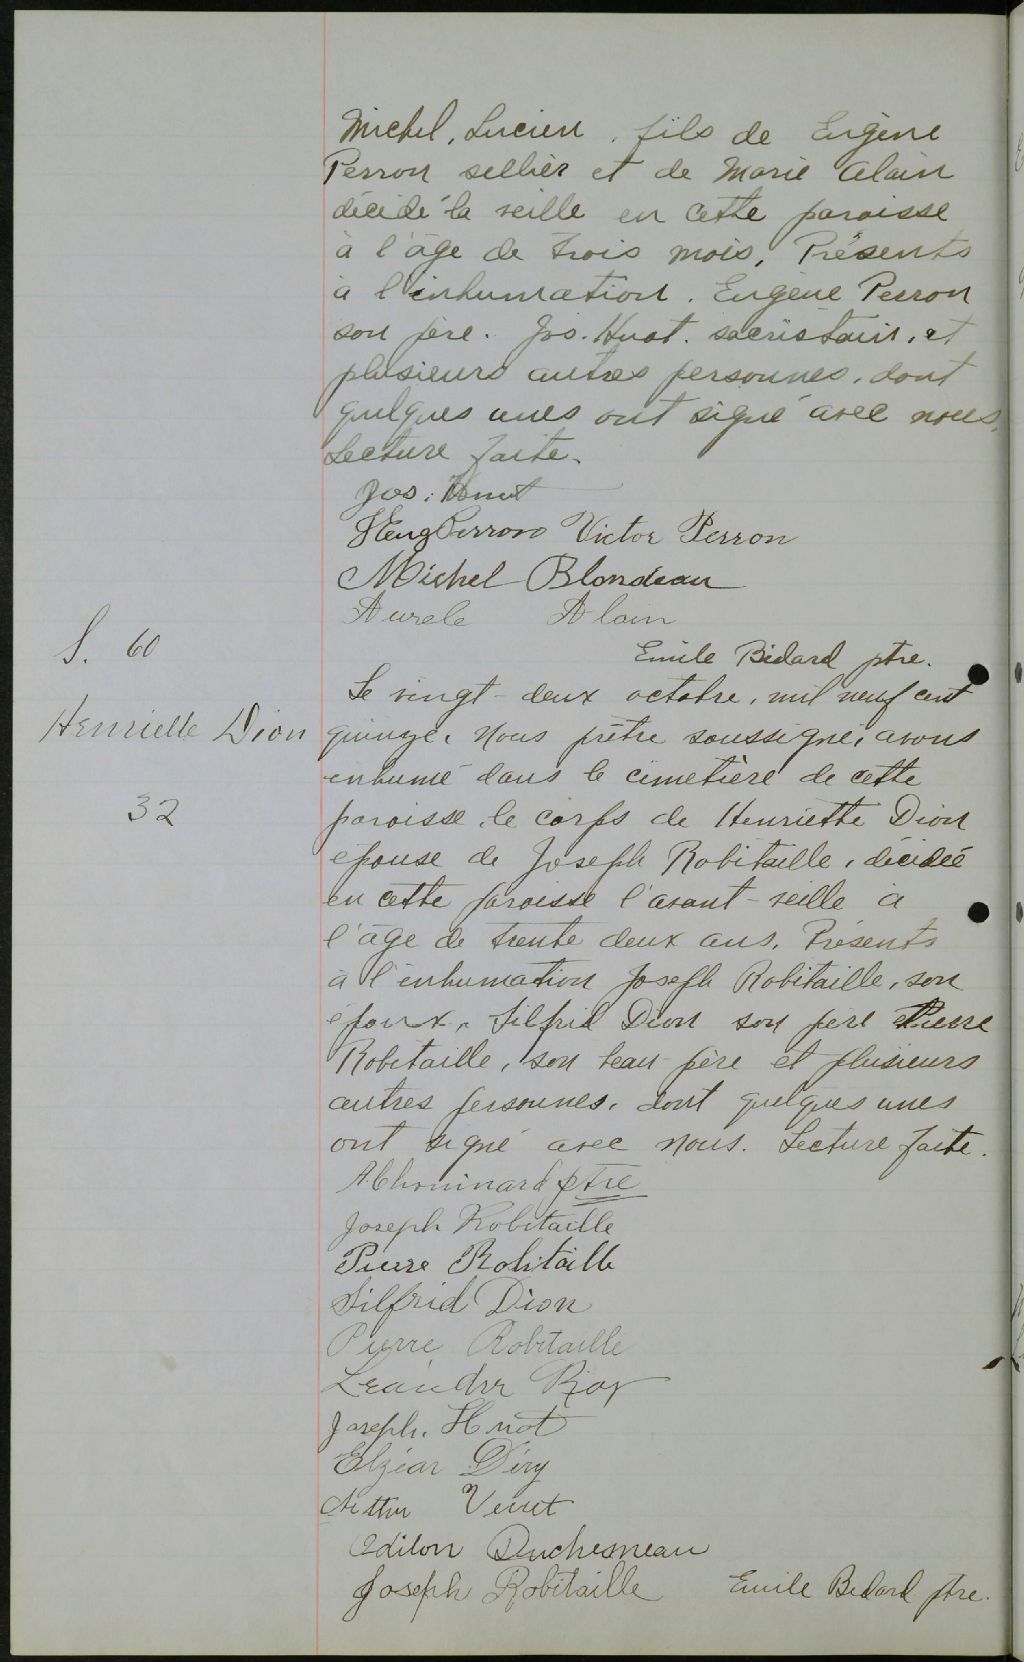 Michel, Lucien, fils de Eugène
Perron sellier et de Marie Alain
décédé la veille en cette paroisse
à l'âge de trois mois. Présents
à l'inhumation. Eugène Perron
son père. Jos. Huot. sacristain, et
plusieurs autres personnes, dont
quelques unes ont signé avec nous.
Lecture faite.
Jos. Huot
Eug Perron Victor Perron
Michel Blondeau
Aurele Alain
Emile Bédard ptre.
S. 60
Henriette Dion
32
Le vingt-deux octobre, mil neuf cent
quinze, nous prêtre soussigné, avons
inhumé dans le cimetière de cette
paroisse le corps de Henriette Dion
épouse de Joseph Robitaille, décédée
en cette paroisse l'avant-veille à
l'âge de trente deux ans. Présents
à l'inhumation Joseph Robitaille, son
époux, Silfrid Dion son père et Pierre
Robitaille, son beau-père et plusieurs
autres personnes, dont quelques unes
ont signé avec nous. Lecture faite.
A Chouinard ptre
Joseph Robitaille
Pierre Robitaille
Silfrid Dion
Pierre Robitaille
Léandre Roy
Joseph. Huot
Elzéar Déry
Arthur
Odilon Duchesneau
Joseph Robitaille Emile Bedard ptre.